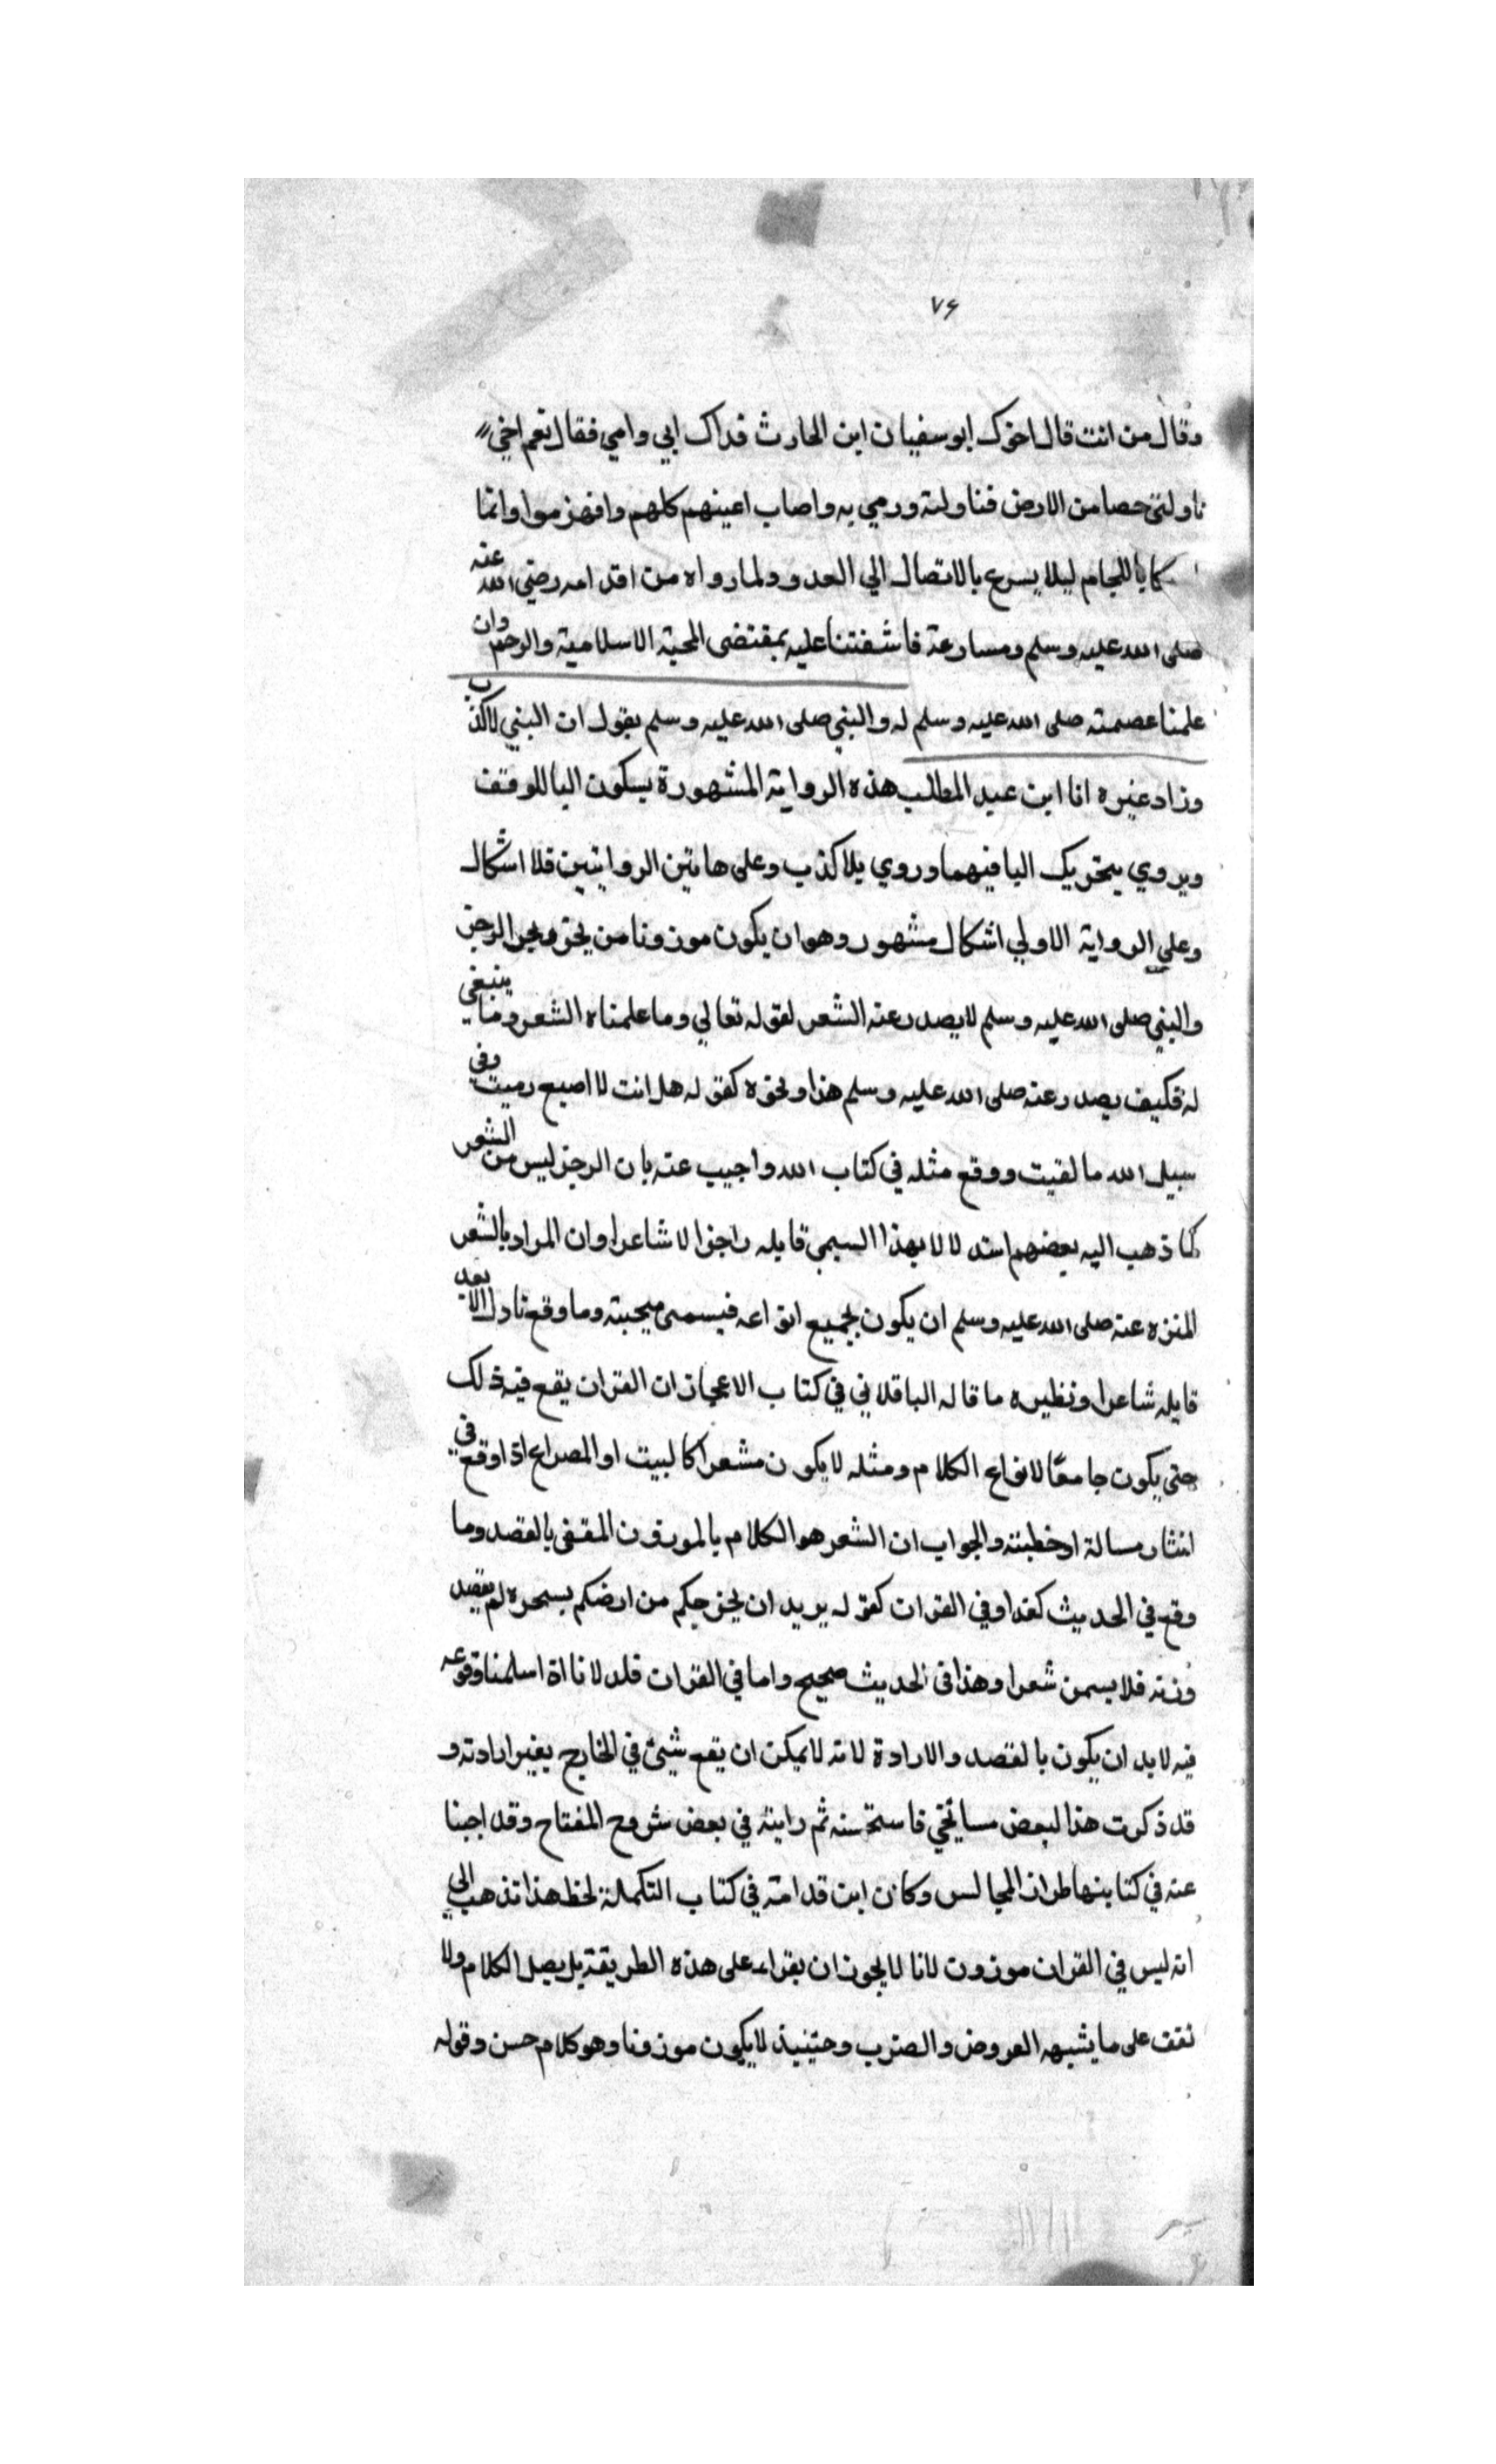 ٧٤
وقال من انت قال اخوك ابو سفيان ابن الحارث فداك ابي وامي فقال نعم اخي
ناولني حصا من الارض فناولته ورمي به واصاب اعينهم كلهم وانهزموا وانما
كاباللجام ليلا يسرع بالاتصال الي العدو ولما رواه من اقدامه رضي الله عنه
صلى الله عليه وسلم ومسارعة فاشفتنا عليه بمقتضى المحبة الاسلامية والرحم وان
علمنا عصمته صلى الله عليه وسلم له والنبي صلى الله عليه وسلم يقول ان النبي لا كذب
وزاد غيره انا ابن عبد المطلب هذه الرواية المشهورة بسكون البا للوقف
ويروي بتحريك البا فيهما وروي بلا كذب وعلى هاتين الروايتين فلا اشكال
وعلي الرواية الاولي اشكال مشهور وهو ان يكون موزونا من الرجز
والنبي صلى الله عليه وسلم لا يصدر عنه الشعر لقوله تعالي وما علمناه الشعر وما ينبغي
له فكيف يصدر عنه صلى الله عليه وسلم هذا ونحوه كقوله هل انت لا اصبع رميت وفي
سبيل الله ما لقيت ووقع مثله في كتاب الله واجيب عنه بان الرجز ليس من الشعر
كما ذهب اليه بعضهم استدلالا بهذا السمي قايله راجزا لا شاعرا وان المراد بالشعر
المنزه عنه صلى الله عليه وسلم ان يكون بجميع انواعه فيسمى وما وقع نادرا لا يعد
قايله شاعرا ونظيره ما قاله الباقلاني في كتاب الاعجاز ان القران يقع فيه ذلك
حتى يكون جامعا لانواع الكلام ومثله لا يكون مشعرا كالبيت او المصراع اذا وقع في
انثار رسالة او خطبته والجواب ان الشعر هو الكلام بالموزون المقفى بالقصد وما
وقع في الحديث كفدا وفي القران كقوله يريد ان يخرجكم من ارضكم بسحره لم يقصد
وزنه فلا يسمى شعرا وهذا في الحديث صحيح واما في القران فلا لانا اذا سلمنا وقوعه
فيه لابد ان يكون بالقصد والارادة لانه لا يمكن ان يقع شيئ في الخارج بغير ارادته و
قد ذكرت هذا لبعض مسائخي فاستحسنه ثم رايته في بعض شروح المفتاح وقد اجبنا
عنه في كتابنها طراز المجالس وكان ابن قدامة في كتاب التكملة لحظ هذا تذهب الي
انه ليس في القران موزون لانا لا يجوز ان يقراء على هذه الطريقة بل يصل الكلام ولا
نقف على ما يشبه العروض والضرب وحينيذ لا يكون موزونا وهو كلام حسن وقوله